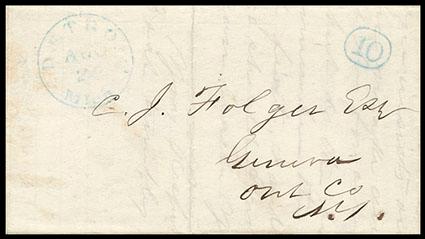 DETROIT
10
AUG
2
MICH
C. J. Folger Esq
Geneva
Ont Co
N.Y.